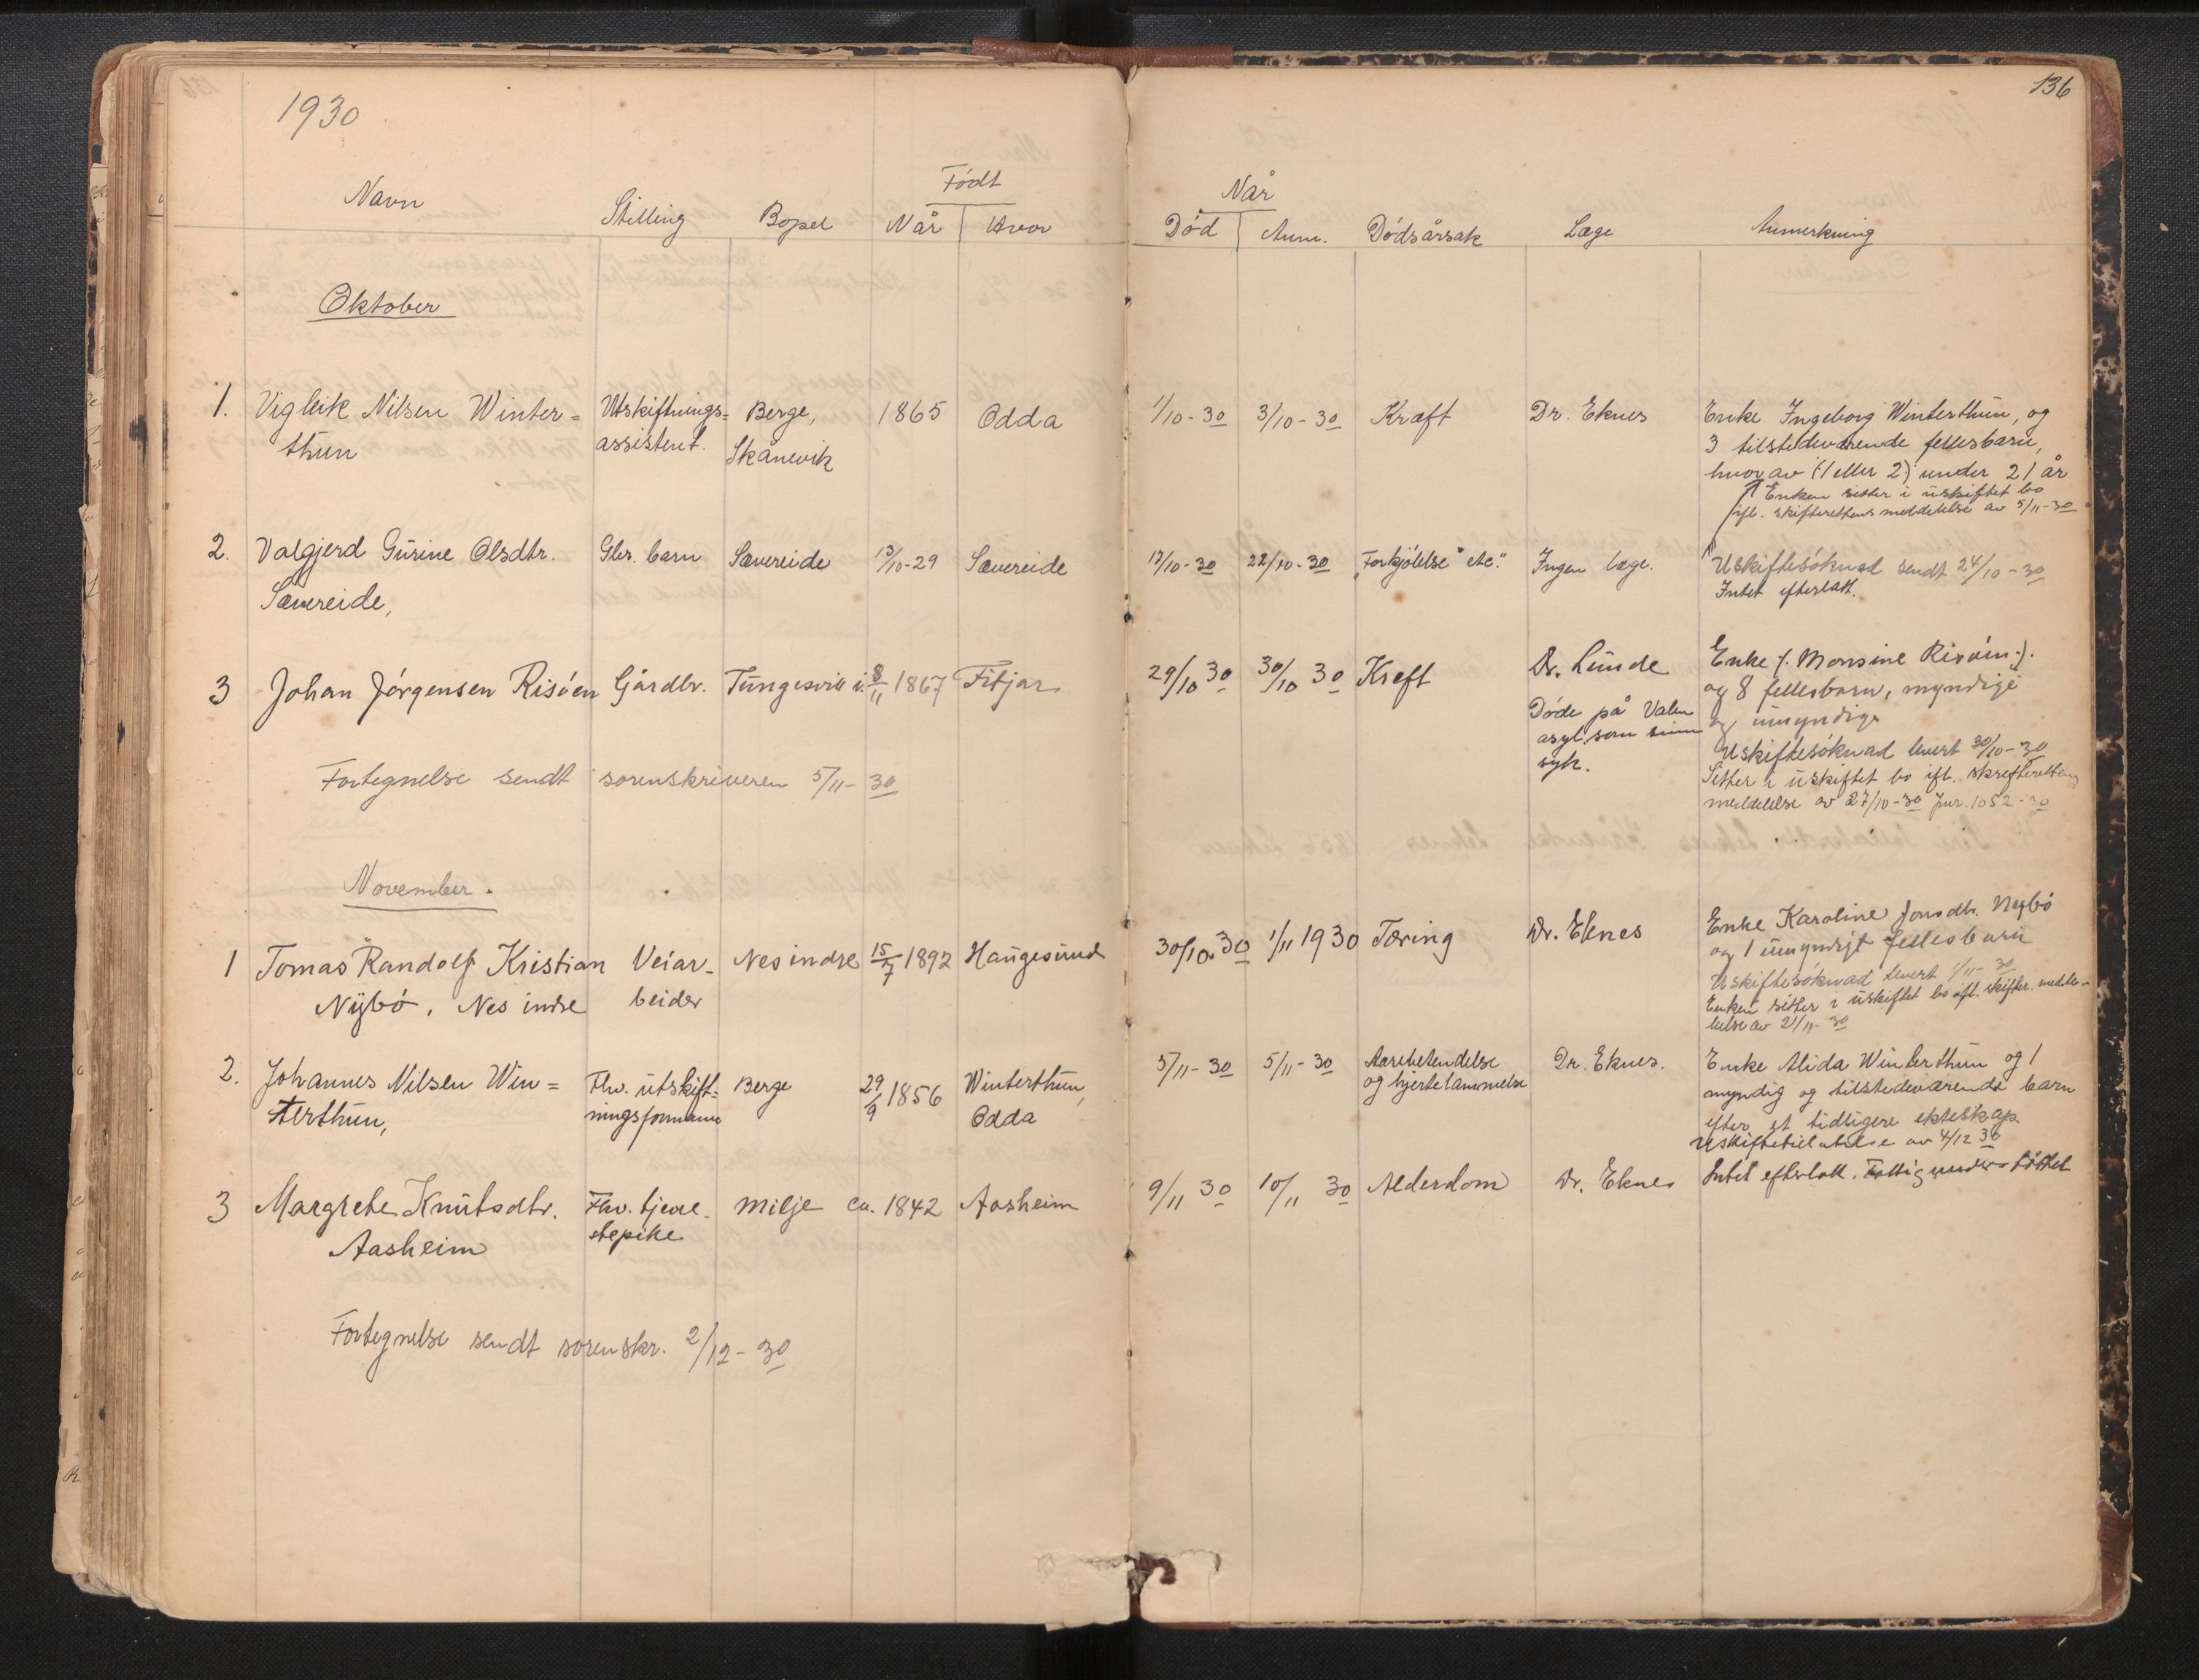 136
1930
Født
Når
Navn Stilling Bopel Når Hvor Død Anm. Dødsårsak Læge Anmerkning
Oktober
1. Vigleik Nilsen Winter= Utskiftnings= Berge, 1865 Odda 1/10-30 3/10-30 Kræft Dr. Eknes Enke Ingeborg Winterthun, og
thun assistent. Skånevik 3 tilstedeværende fellesbarn,
hvorav (1 eller 2) under 21 år
Enken sitter i uskiftet bo
ifl. skifterettens meddelelse av 5/11-30
2. Valgjerd Gurine Olsdtr. Gbr. barn Sævereide 13/10-29 Sævereide 17/10-30 22/10-30 "Forkjølelse etc." Ingen læge. Uskiftesøknad sendt 24/10-30
Sævereide, Intet efterlatt.
3 Johan Jørgensen Risøen Gårdbr. Tungesvik i. 8/11 1867 Fitjar 29/10 30 30/10 30 Kreft Dr. Lunde Enke /: Monsine Risøen :/.
og 8 fellesbarn, myndige
Døde på Valen og umyndige
asyl som sinn Uskiftesøknad levert 30/10-30
syk. Sitter i uskiftet bo ifl. skifterettens
meddelelse av 27/10-30 Jnr. 1052-30
Fortegnelse sendt sorenskriveren 5/11-30
November.
1 Tomas Randolf Kristian Veiar- Nes indre 15/7 1892 Haugesund 30/10.30 1/11 1930 Tæring Dr. Eknes Enke Karoline Jonsdtr. Nybø
Nybø, Nes indre beider og 1 umyndigt fellesbarn
Uskiftesøknad levert 1/11-30
Enken sitter i uskiftet bo ifl. skifter. medde-
lelse av 21/11-30
2. Johannes Nilsen Win= Fhv. utskift= Berge 29/9 1856 Winterthun, 5/11-30 5/11-30 Aarebetendelse Dr. Eknes. Enke Alida Winterthun og 1
terthun, ningsformann Odda og hjertelammelse myndig og tilstedeværende barn
efter et tidligere ekteskap.
Uskiftetillatelse av 4/12 30
3 Margrete Knutsdtr. Fhv. tjene- Milje ca. 1842 Aasheim 9/11 30 10/11 30 Alderdom Dr. Eknes Intet efterlatt. Fattigunderstøttet
Aasheim stepike
Fortegnelse sendt sorenskr. 2/12-30